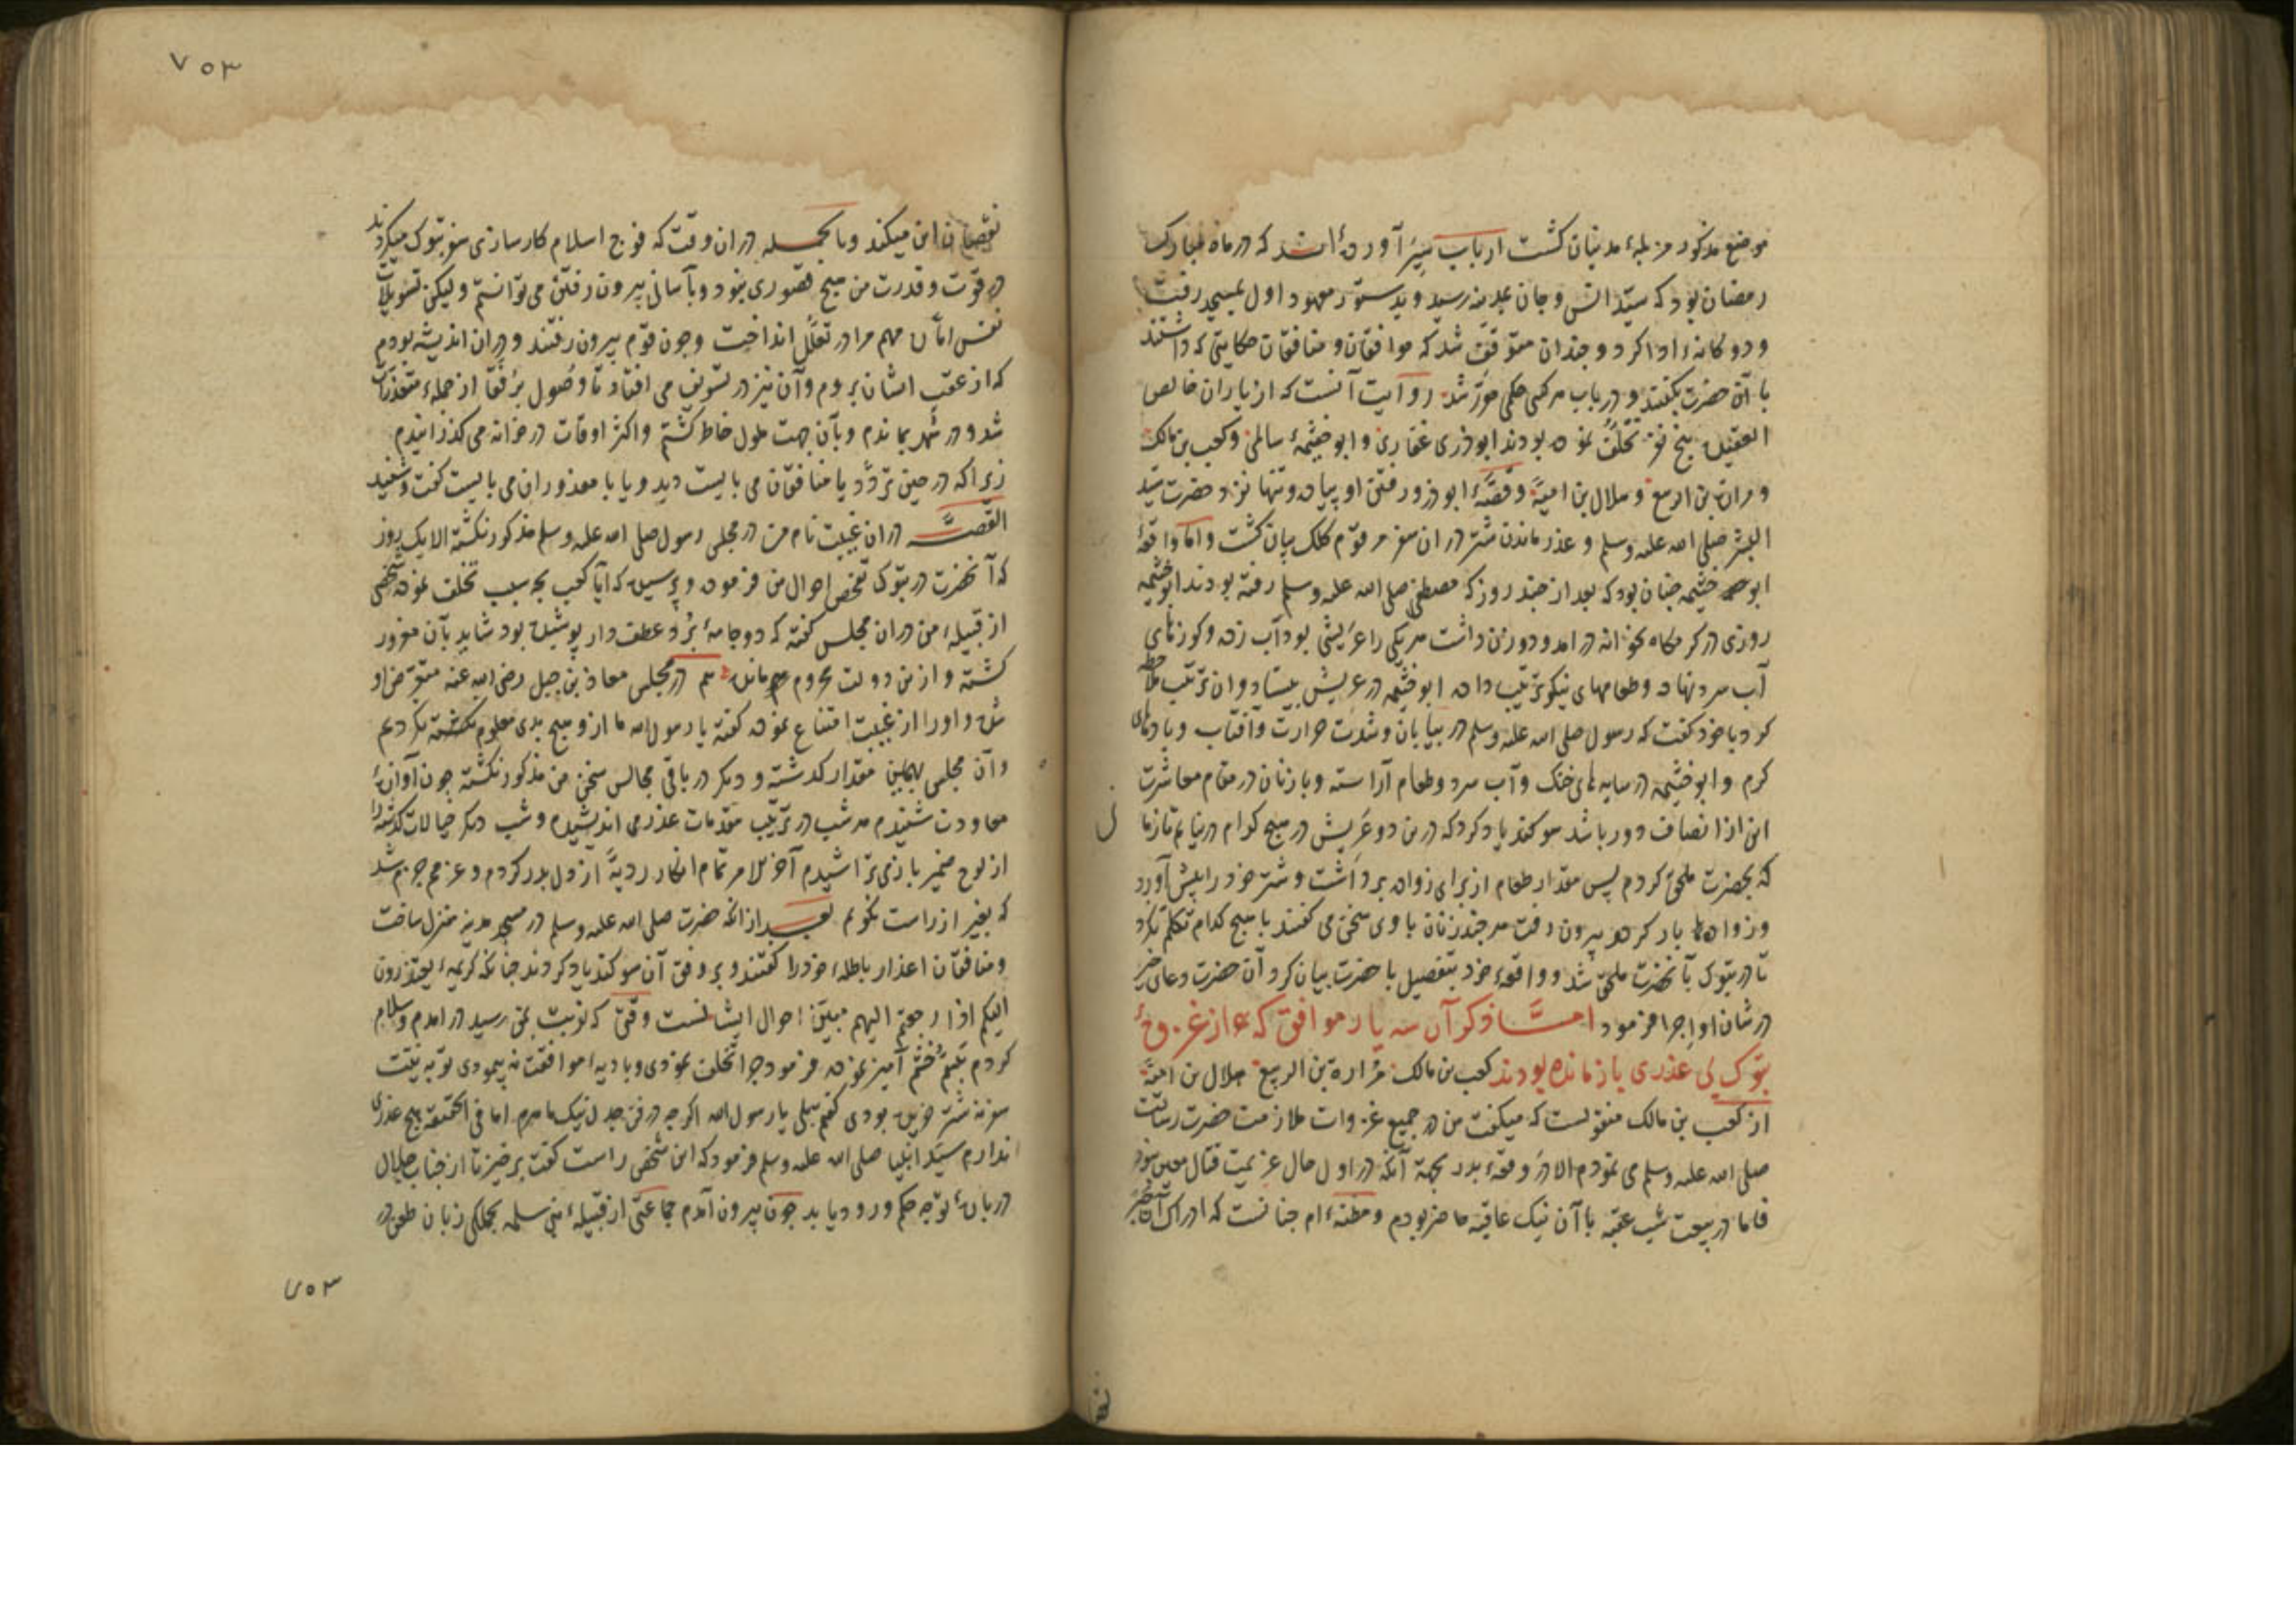 موضع مذکور مزبلهٔ مدنیان کشت ارباب سیر آورده‌اند که در ماه مبارک
رمضان بود که سید انس و جان بمدینه رسید و بدستور معهود اول بمسجد رفت
و دوکانه ادا کرد و چندان متوقف شد که موافقان و منافقان حکایتی که داشتند
با آن حضرت بکفتند و در باب هر کسی حکمی شد روایت آنست که از یاران خالص
العقیده پنج نفر تخلف نموده بودند ابوذری غفاری و ابو خیثمهٔ سالمی و کعب بن مالک
و مرارة بن الربیع و هلال بن امیه و قصهٔ ابوذر و رفتن او پیاده و تنها نزد حضرت سید
البشر صلی الله علیه وسلم و عذر ماندن شتر در ان سفر مرقوم کلک بیان کشت و اما واقعهٔ
ابو خیثمه چنان بود که بعد از چند روز که مصطفی صلی الله علیه وسلم رفته بودند ابو خیثمه
روزی در کرمکاه بخانه در امد و دو زن داشت هر یکی را عریشی بود آب زده و کوزهای
آب سرد نهاده و طعامهای نیکو ترتیب داده ابو خیثمه در عریش بیستاد و ان ترتیب ملاحظه
کرد با خود کفت که رسول صلی الله علیه وسلم در بیابان و شدت حرارت و آفتاب و بادهای
کرم و ابو خیثمه در سایه های خنک و آب سرد و طعام آراسته و با زنان در مقام معاشرت
این از انصاف دور باشد سوکند یاد کرد که درین دو عریش در هیچ کدام در نیایم تا زمانی
که بحضرت ملحق کردم پس مقدار طعام از برای زواده برداشت و شتر خود را پیش آورد
و زواده بار کرده بیرون رفت هر چند زنان با وی سخن می کفتند با هیچ کدام تکلم نکرد
تا در تبوک بآنحضرت ملحق شد و واقعهٔ خود بتفصیل با حضرت بیان کرد آن حضرت دعای خیر
در شان او اجرا فرمود امـا ذکر آن سه یار موافق که از غزوهٔ
تبوک بی عذری باز مانده بودند کعب بن مالک مرارة بن الربیع هلال بن امیه
از کعب بن مالک منقولست که میکفت من در جمیع غزوات ملازمت حضرت رسالت
صلی الله علیه وسلم می نمودم الا در وقعهٔ بدر بجهة آنکه در اول حال عزیمت قتال معین نبود
فاما در بیعت شب عقبه با آن نیک عاقبه حاضر بودم و مظنه‌ام چنانست که ادراک آن
۷۵۳
نقصان این میکند وبالجمـله در ان وقت که فوج اسلام کارسازی سفر تبوک میکردند
در قوت و قدرت من هیچ قصوری نبود و بآسانی بیرون رفتن می توانستم ولیکن تسویلات
نفس اماره مهم مرا در تعلل انداخت و چون قوم بیرون رفتند و در ان اندیشه بودم
که از عقب ایشان بروم و آن نیز در تسویف می افتاد تا وصول برفقا از جملهٔ متعذرات
شد و در شهر بماندم و بآن جهت ملول خاطر کشتم و اکثر اوقات در خانه می کذرانیدم
زیرا که در حین تردد یا منافقان می بایست دید و یا با معذوران می بایست کفت و شنید
القصـه در ان غیبت نام من در مجلس رسول صلی الله علیه وسلم مذکور نکشته الا یک روز
که آنحضرت در تبوک تفحص احوال من فرموده و پرسیده که آیا کعب بچه سبب تخلف نموده شخصی
از قبیلهٔ من در ان مجلس کفته که دو جامهٔ برد عطف دار پوشیده بود شاید بآن مغرور
کشته و ازین دولت محروم مانده هم در مجلس معاذ بن جبل رضی الله عنه متعرض او
شده و او را از غیبت امتناع نموده کفته یا رسول الله ما از و هیچ بدی معلوم نکرده‌ایم
و آن مجلس بهمین مقدار کذشته و دیکر در باقی مجالس سخن من مذکور نکشته چون آوازهٔ
معاودت شنیدم هر شب در ترتیب مقدمات عذر می اندیشیدم و شب دیکر خیالات کذشته را
از لوح ضمیر باز می تراشیدم آخر الامر تمام افکار ردیه از دل بدر کردم و عزمم جزم شد
که بغیر از راست نکویم بعـد از انکه حضرت صلی الله علیه وسلم در مسجد مدینه منزل ساخت
و منافقان اعذار باطلهٔ خود را کفتند و بر وفق آن سوکند یاد کردند چنانکه کریمهٔ یعتذرون
الیکم اذا رجعتم الیهم مبین احوال ایشانست وقتی که نوبت بمن رسید در امدم و سلام
کردم تبسم خشم آمیز نموده فرمود چرا تخلف نمودی و بادیهٔ موافقت نه پیمودی نه بنیت
سفر نه شتر خریده بودی کفتم بلی یا رسول الله اکرچه در فن جدل نیک ماهرم اما فی الحقیقه هیچ عذری
ندارم سید انبیا صلی الله علیه وسلم فرمود که این شخص راست کفت برخیز تا از جناب جلال
در بارهٔ تو چه حکم ورود یابد چون بیرون آمدم جماعتی از قبیلهٔ بنی سلمه بجملکی زبان طعن در
۷۵۳